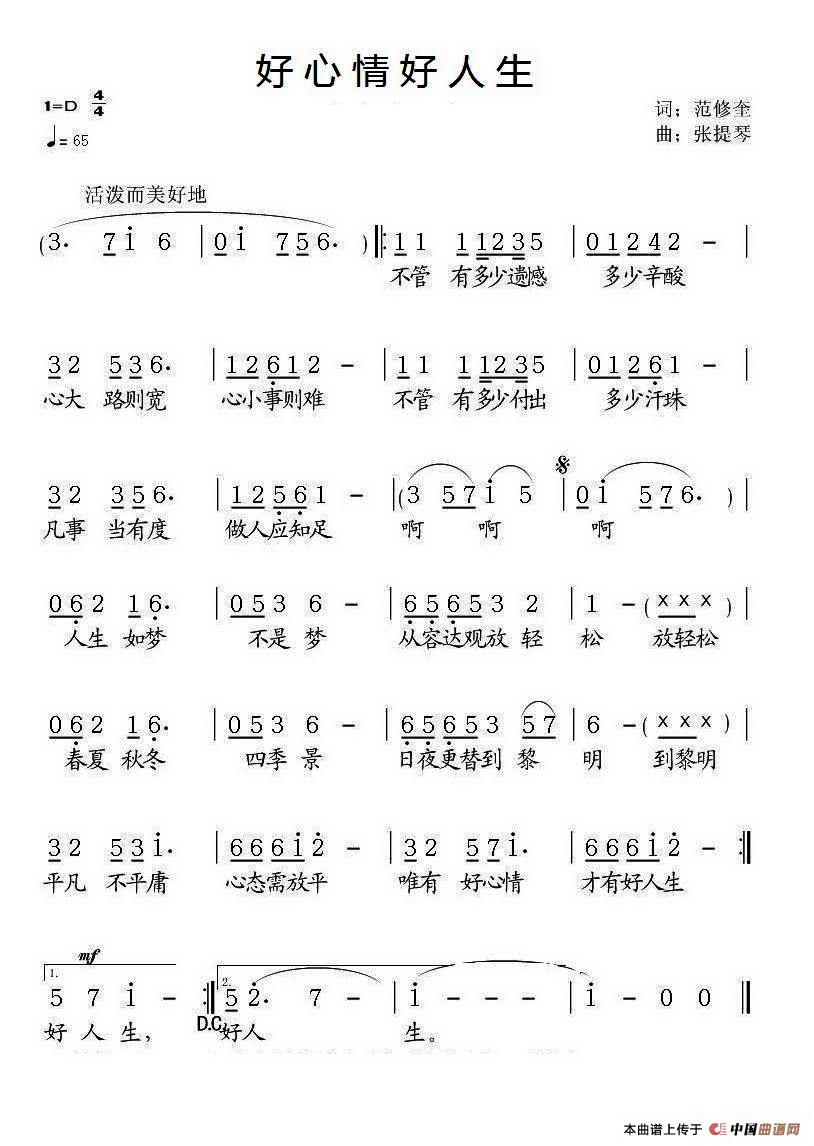 好心情好人生
1=D 4/4
♩= 65
词：范修奎
曲：张提琴
活泼而美好地
(3. 7i 6 | 0i 756. ) ‖: 11 11235 | 01242 - |
不管 有多少遗憾 多少辛酸
32 536. | 12612 - | 11 11235 | 01261 - |
心大 路则宽 心小事则难 不管 有多少付出 多少汗珠
32 356. | 12561 - | (3 57i 5 | 0i 576. )
凡事 当有度 做人应知足 啊 啊 啊
062 16. | 053 6 - | 65653 2 | 1 - (x x x) |
人生 如梦 不是 梦 从容达观放 轻 松 放轻松
062 16. | 053 6 - | 65653 57 | 6 - (x x x) |
春夏 秋冬 四季 景 日夜更替到 黎 明 到黎明
32 53i. | 666i2 - | 32 57i. | 666i2 - :‖
平凡 不平庸 心态需放平 唯有 好心情 才有好人生
mf
1. 2.
5 7 i - :‖ 52. 7 - | i - - - | i - 0 0 ‖
D.C.
好 人 生, 好人 生。
本曲谱上传于 中国曲谱网